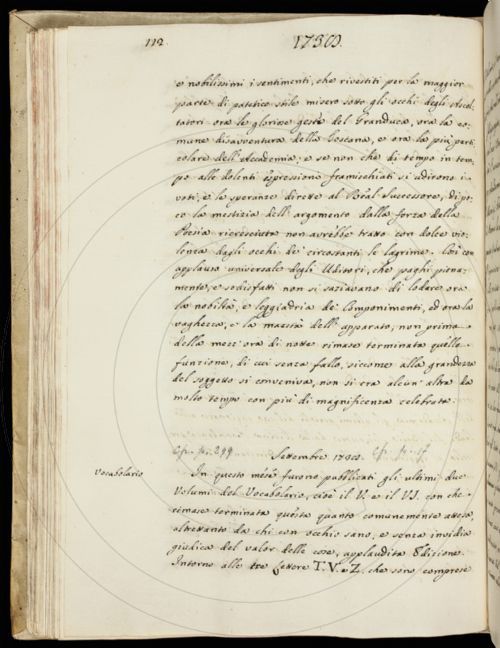 112.
1738.
e nobilissimi i sentimenti, che rivestiti per la maggior
parte di patetico stile misero sotto gli occhi degli Ascol-
tatori ora le gloriose gesta del Granduca, ora la co-
mune disavventura della Toscana, e ora la più parti
colare dell'Accademia; e se non che di tempo in tem-
po alle dolenti espressioni framischiati si udirono i
voti, e le speranze dirette al Real Successore, di po-
co la mestizia dell'argomento dalla forza della
Poesia ricresciuta non avrebbe tratto con dolce vio-
lenza dagli occhi de' circostanti le lagrime. Così con
applauso universale degli Uditori, che paghi piena-
mente, e sodisfatti non si saziavano di lodare ora
la nobiltà, e leggiadria de' Componimenti, ed ora la
vaghezza, e la maestà dell'apparato, non prima
della mezz'ora di notte rimase terminata quella
funzione, di cui senza fallo, siccome alla grandezza
del soggetto si conveniva, non si era alcun'altra da
molto tempo con più di magnificenza celebrata.
Settembre 1738.
Vocabolario
In questo mese furono pubblicati gli ultimi due
Volumi del Vocabolario, cioè il V. e il VI. con che
rimase terminata questa quanto comunemente attesa,
altrettanto da chi con occhio sano, e senza invidia
giudica del valor delle cose, applaudita Edizione.
Intorno alle tre Lettere T. V. e Z. che sono comprese